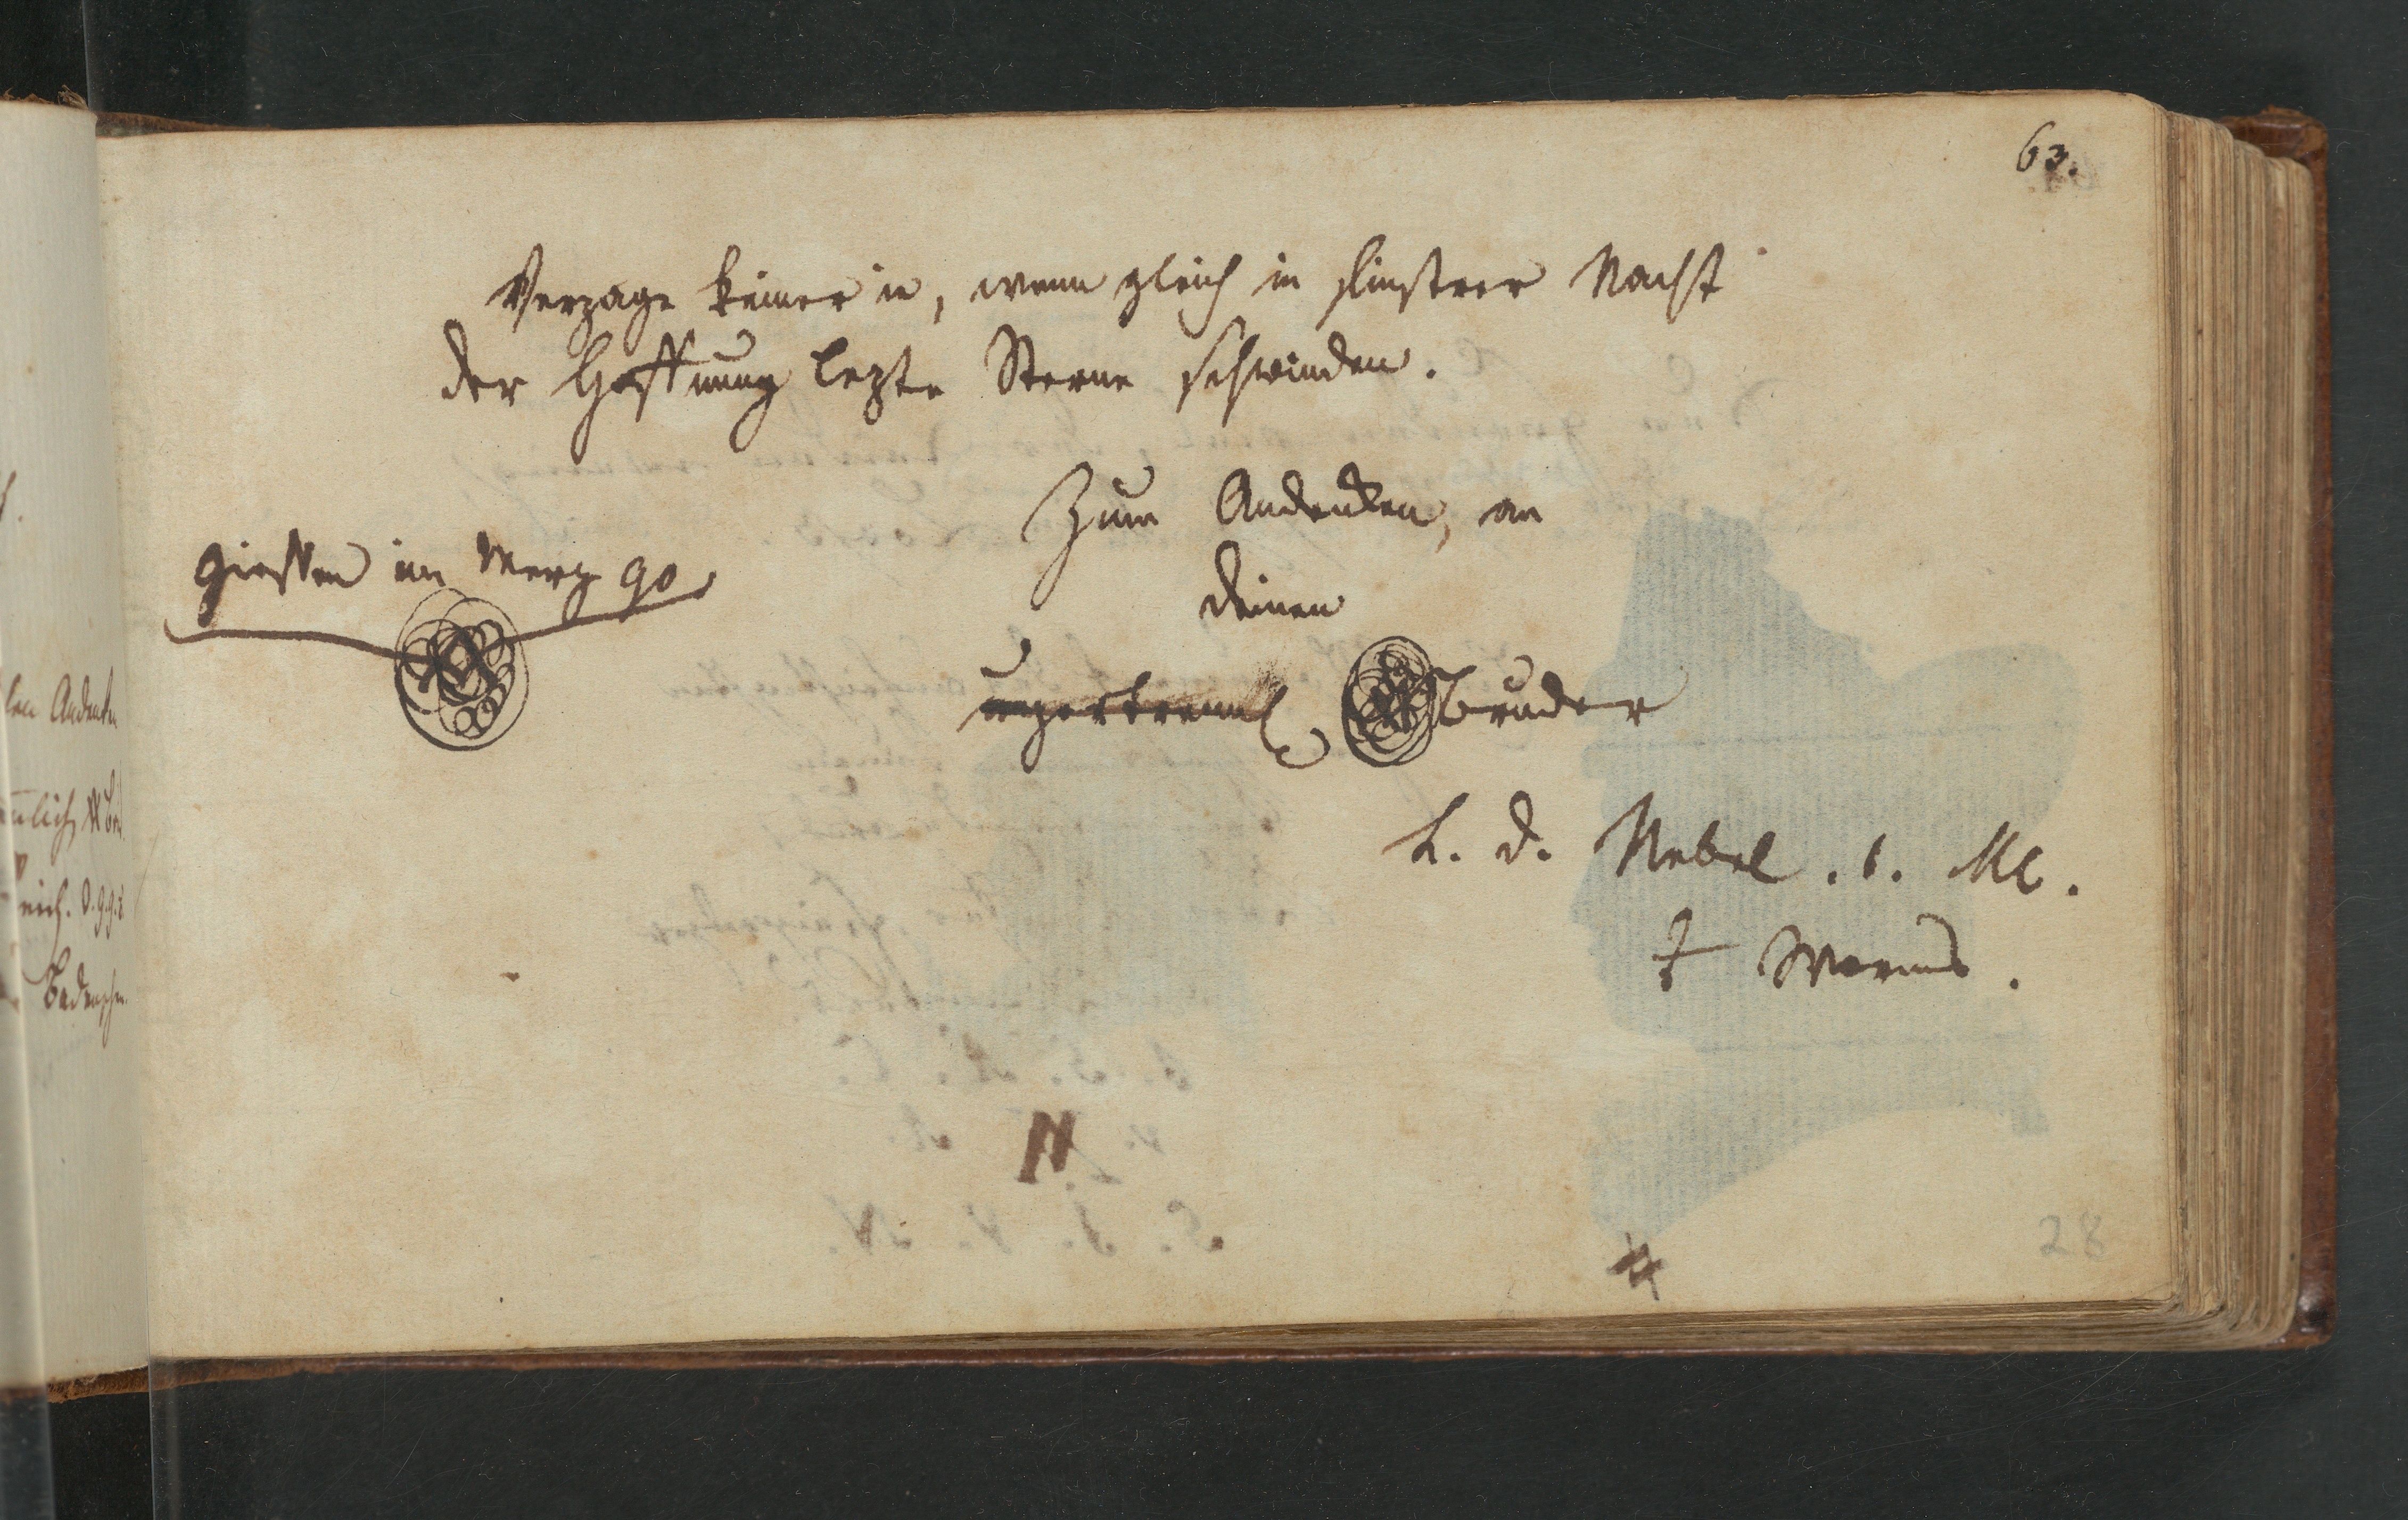 63.
Verzage keiner ie, wenn gleich in finstrer Nacht
der Hoffnung lezte Sterne schwinden.
Zum Andenken, an
Giessen im Merz 90
deinen
unzertrennl bruder
L. d. Nebel. b. Mc.
Worms.
28